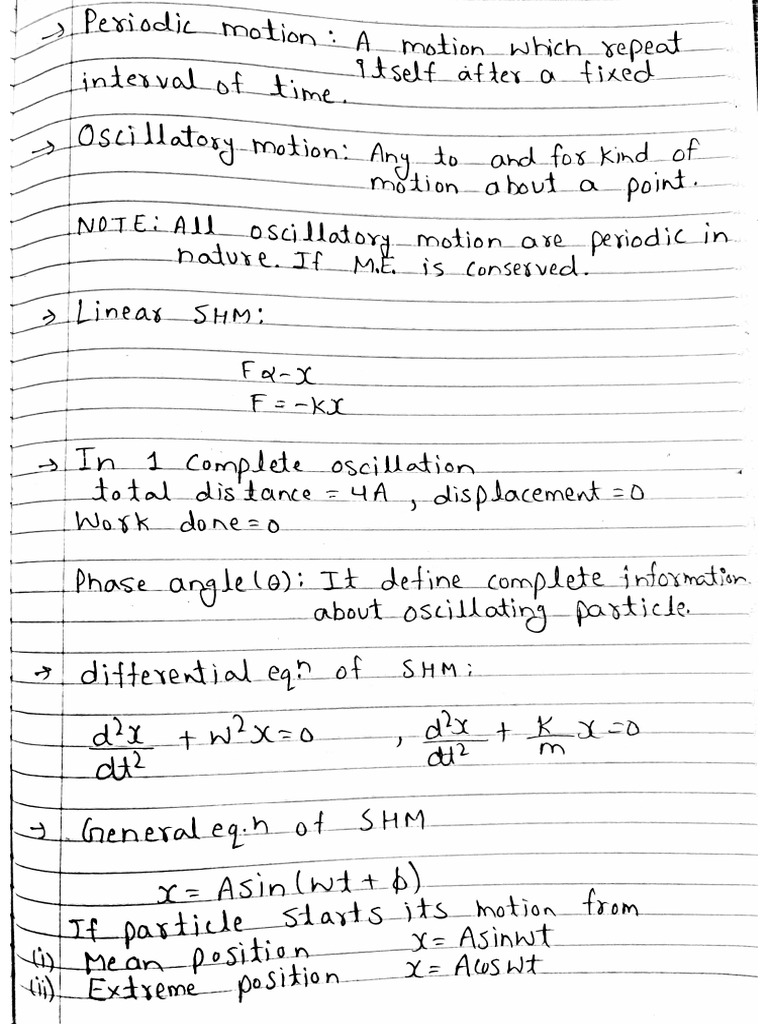 → Periodic motion: A motion which repeat
itself after a fixed
interval of time.
→ Oscillatory motion: Any to and for kind of
motion about a point.
NOTE: All oscillatory motion are periodic in
nature. If M.E. is conserved.
→ Linear SHM:
F α -x
F = -kx
→ In 1 complete oscillation
total distance = 4A , displacement = 0
Work done = 0
Phase angle (θ): It define complete information
about oscillating particle.
→ differential eq.n of SHM:
d²x/dt² + w²x = 0 , d²x/dt² + k/m x = 0
→ General eq.n of SHM
x = Asin(wt + ϕ)
If particle starts its motion from
(i) Mean position x = Asinwt
(ii) Extreme position x = Acoswt